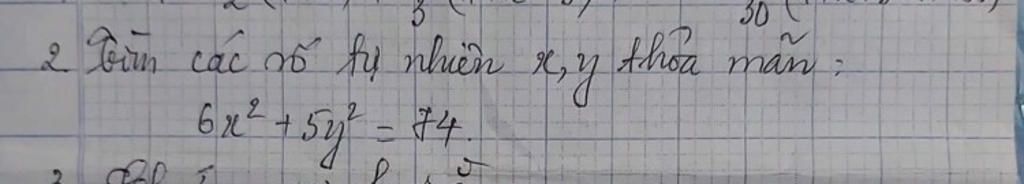 2 Tìm các số tự nhiên x, y thỏa mãn:
6x² + 5y² = 74.